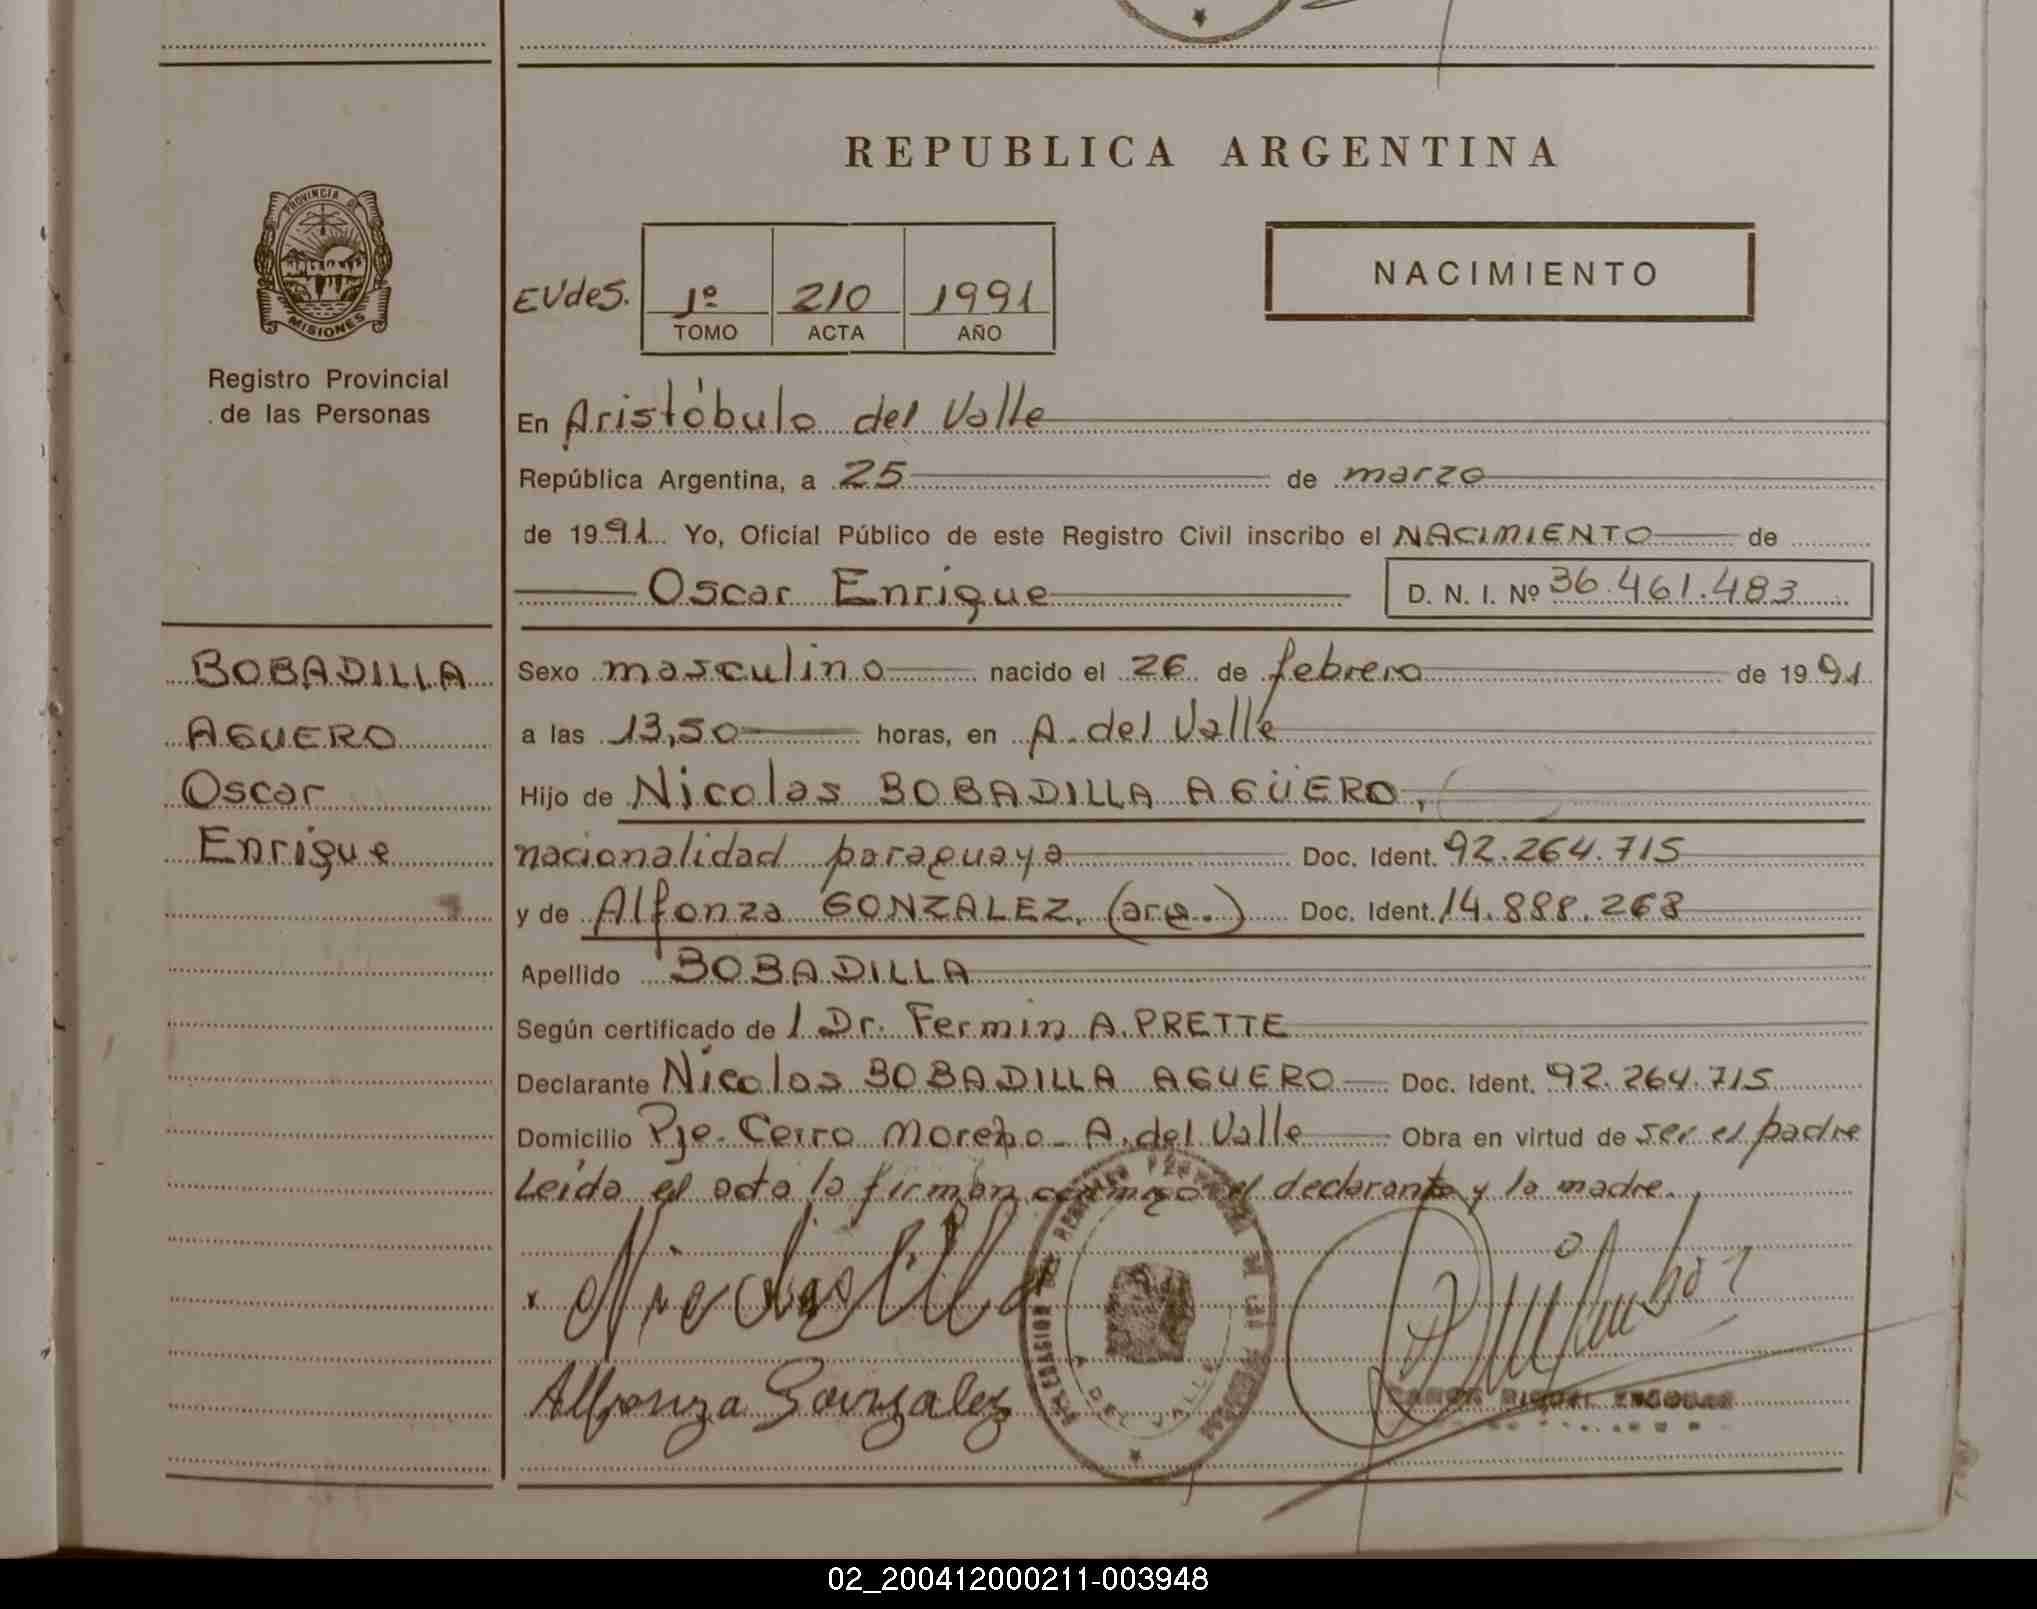 REPUBLICA ARGENTINA
PROVINCIA DE
MISIONES
Registro Provincial
de las Personas
EUdeS.
1º 210 1991
TOMO ACTA AÑO
NACIMIENTO
En Aristóbulo del Valle
República Argentina, a 25 de marzo
de 1991 Yo, Oficial Público de este Registro Civil inscribo el NACIMIENTO de
Oscar Enrique D. N. I. Nº 36.461.483
BOBADILLA
AGUERO
Oscar
Enrique
Sexo masculino nacido el 26 de febrero de 1991
a las 13,50 horas, en A. del Valle
Hijo de Nicolas BOBADILLA AGÜERO,
nacionalidad paraguaya Doc. Ident. 92.264.715
y de Alfonza GONZALEZ, (arg.) Doc. Ident. 14.888.268
Apellido BOBADILLA
Según certificado de l Dr. Fermin A. PRETTE
Declarante Nicolas BOBADILLA AGUERO Doc. Ident. 92.264.715
Domicilio Pje. Cerro Moreno - A. del Valle Obra en virtud de ser el padre
Leída el acta la firman conmigo el declarante y la madre.
Alfonza Gonzalez
A DEL VALLE
02_200412000211-003948